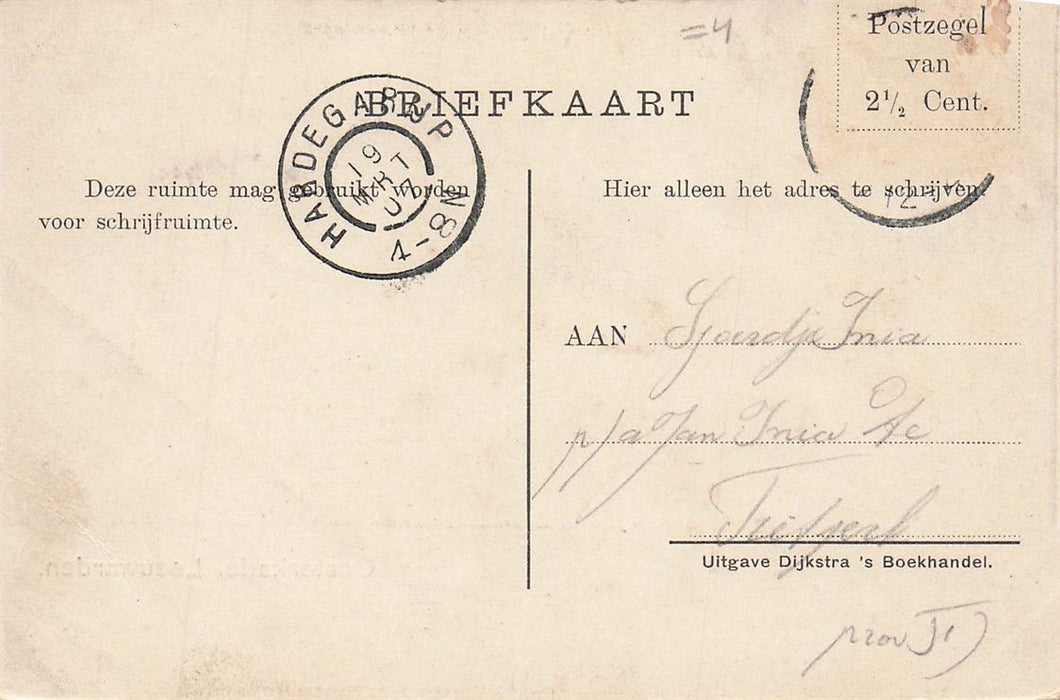 =4
Postzegel
van
2½ Cent.
BRIEFKAART
HARDEGARIJP
19
MRT
07
4-8N
Deze ruimte mag gebruikt worden
voor schrijfruimte.
Hier alleen het adres te schrijven.
12
AAN Sjoerdje Inia
p/a Jan Inia
Uitgave Dijkstra 's Boekhandel.
Oosterkade, Leeuwarden.
prov